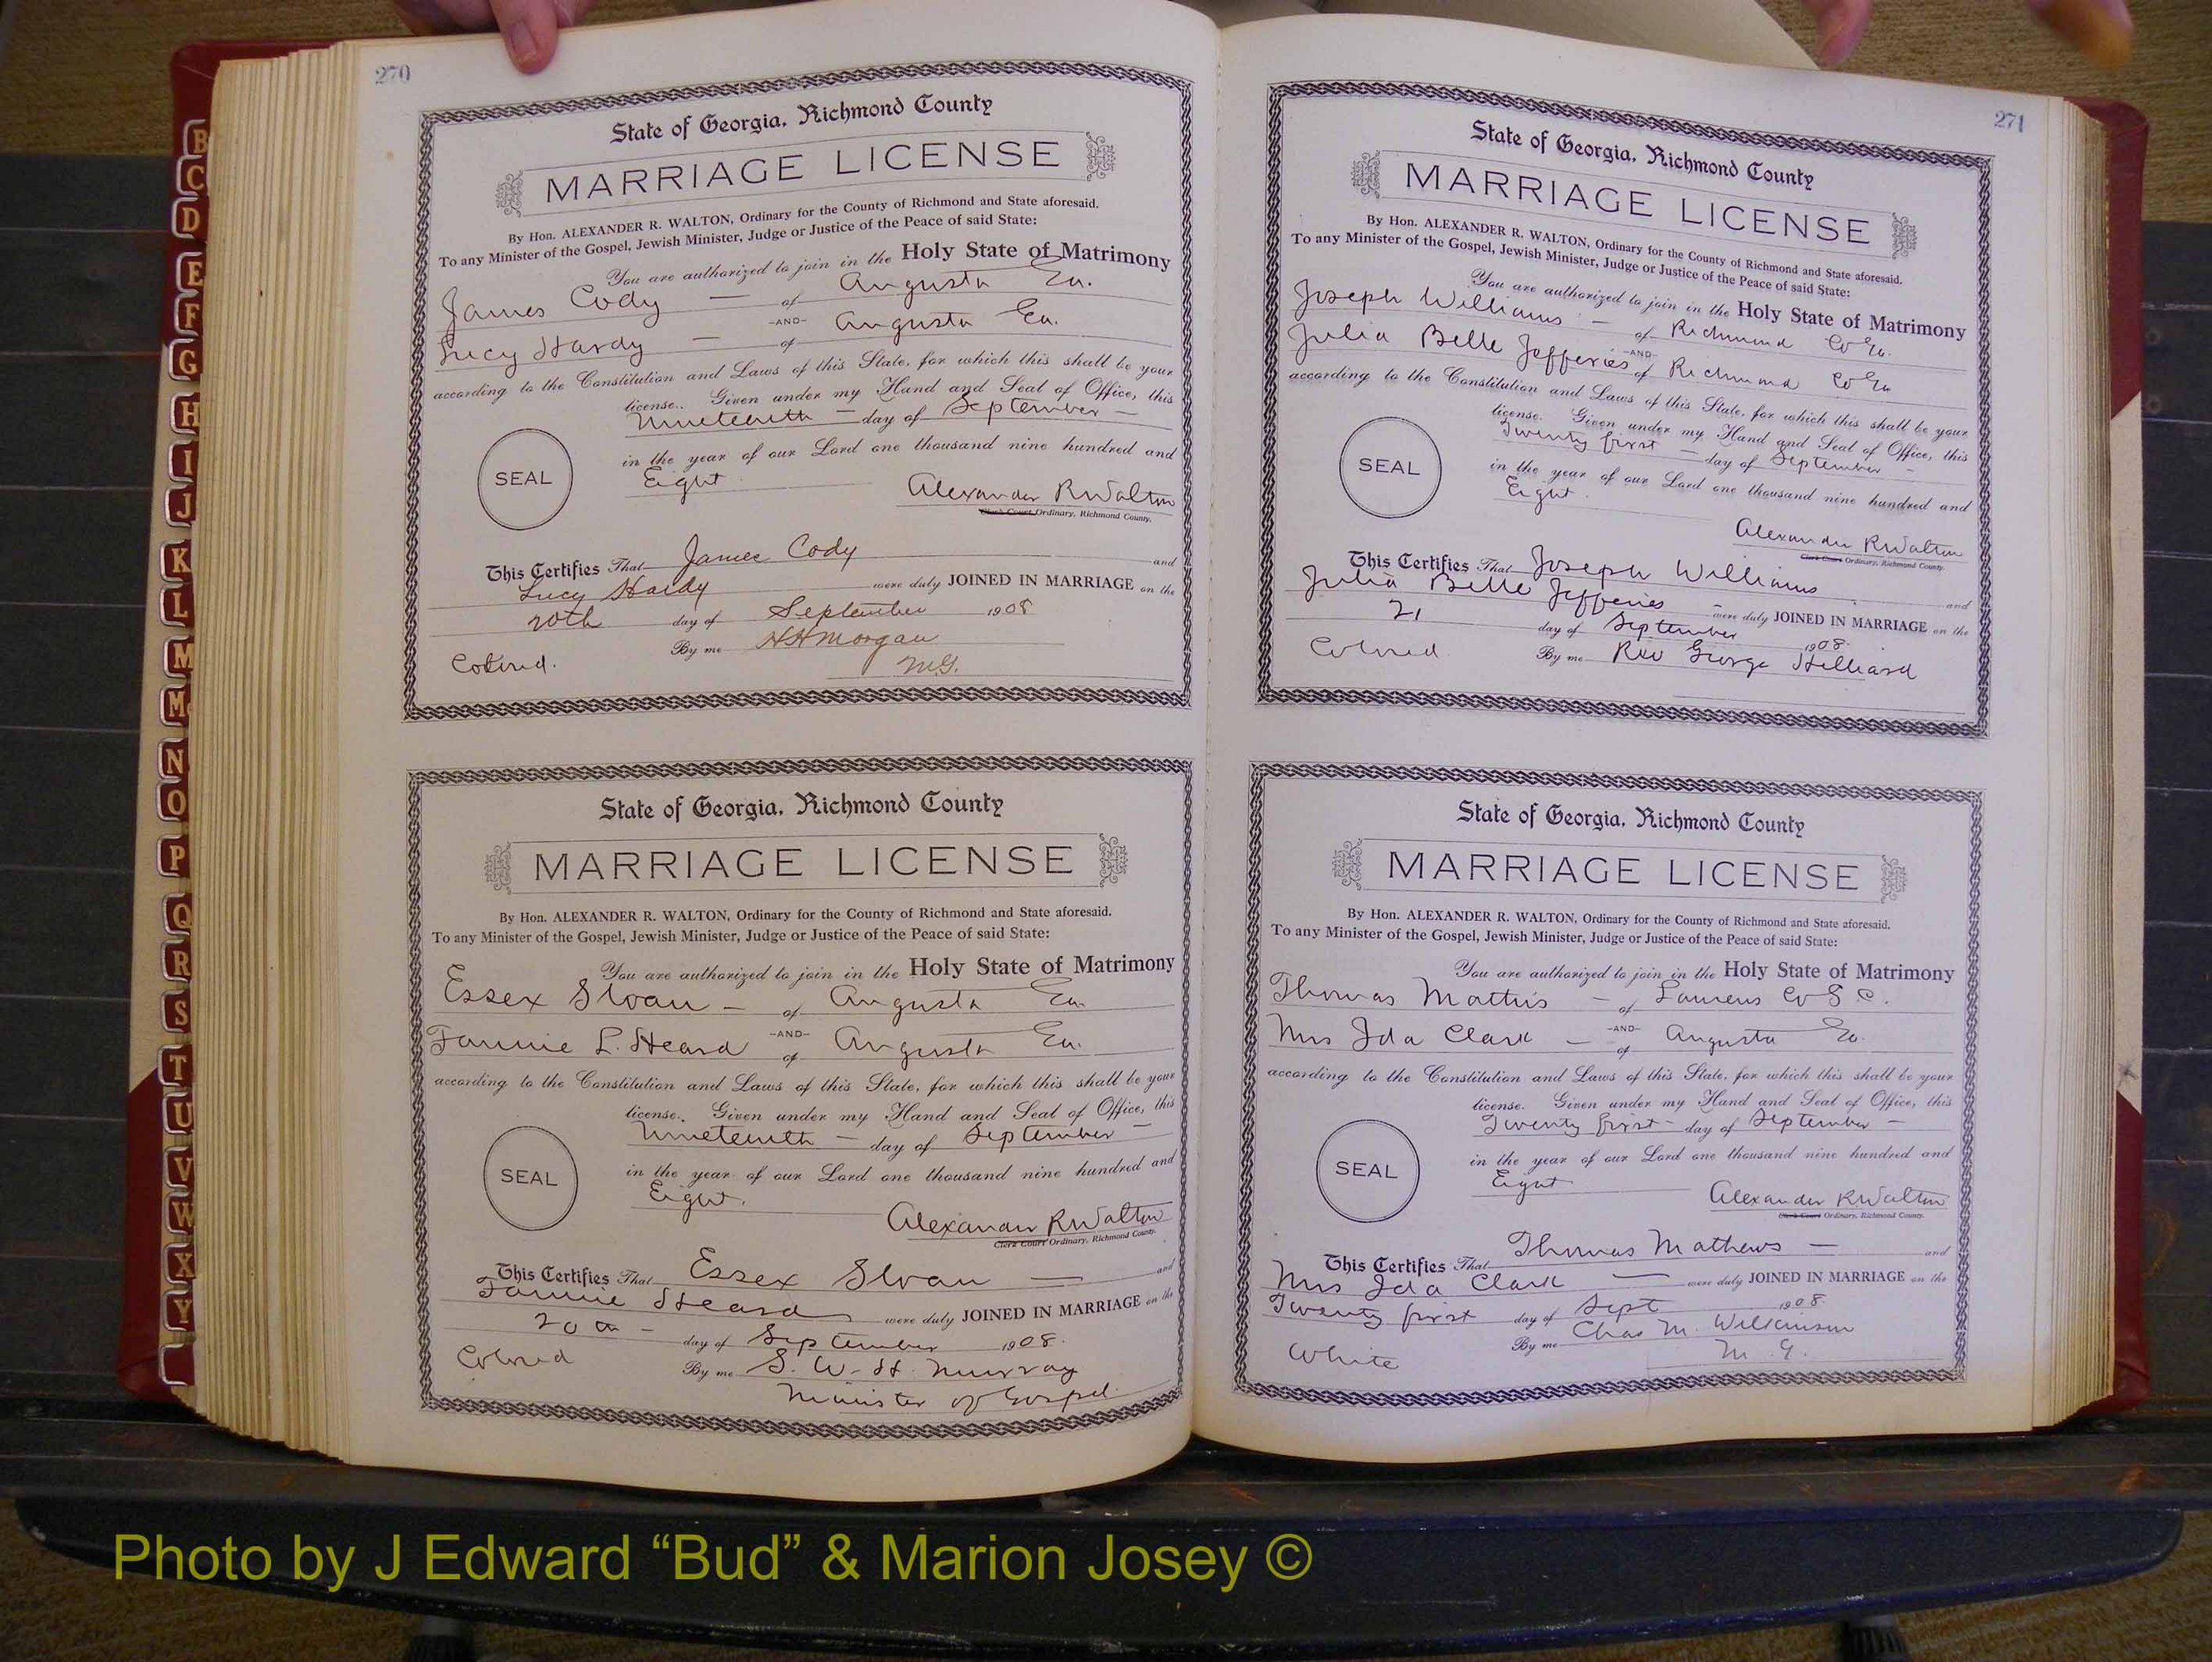 270
State of Georgia, Richmond County
MARRIAGE LICENSE
By Hon. ALEXANDER R. WALTON, Ordinary for the County of Richmond and State aforesaid.
To any Minister of the Gospel, Jewish Minister, Judge or Justice of the Peace of said State:
You are authorized to join in the Holy State of Matrimony
James Cody — of Augusta Ga.
-AND-
Lucy Hardy — of Augusta Ga.
according to the Constitution and Laws of this State, for which this shall be your
license. Given under my Hand and Seal of Office, this
Nineteenth — day of September —
SEAL
in the year of our Lord one thousand nine hundred and
Eight
Alexander R Walton
Clerk Court Ordinary, Richmond County.
This Certifies That James Cody and
Lucy Hardy were duly JOINED IN MARRIAGE on the
20th day of September 1908
By me HH Morgan
Colored. M.G.
State of Georgia, Richmond County
MARRIAGE LICENSE
By Hon. ALEXANDER R. WALTON, Ordinary for the County of Richmond and State aforesaid.
To any Minister of the Gospel, Jewish Minister, Judge or Justice of the Peace of said State:
You are authorized to join in the Holy State of Matrimony
Essex Sloan — of Augusta Ga.
-AND-
Fannie L. Heard of Augusta Ga.
according to the Constitution and Laws of this State, for which this shall be your
license. Given under my Hand and Seal of Office, this
Nineteenth — day of September —
SEAL
in the year of our Lord one thousand nine hundred and
Eight.
Alexander R Walton
Clerk Court Ordinary, Richmond County.
This Certifies That Essex Sloan — and
Fannie Heard were duly JOINED IN MARRIAGE on the
20th — day of September 1908.
Colored By me S. W. H. Murray
Minister of Gospel.
271
State of Georgia, Richmond County
MARRIAGE LICENSE
By Hon. ALEXANDER R. WALTON, Ordinary for the County of Richmond and State aforesaid.
To any Minister of the Gospel, Jewish Minister, Judge or Justice of the Peace of said State:
You are authorized to join in the Holy State of Matrimony
Joseph Williams — of Richmond Co Ga.
-AND-
Julia Belle Jefferies of Richmond Co Ga
according to the Constitution and Laws of this State, for which this shall be your
license. Given under my Hand and Seal of Office, this
Twenty first — day of September —
SEAL
in the year of our Lord one thousand nine hundred and
Eight.
Alexander R Walton
Clerk Court Ordinary, Richmond County.
This Certifies That Joseph Williams and
Julia Belle Jefferies were duly JOINED IN MARRIAGE on the
21 day of September 1908.
Colored By me Rev George Hilliard
State of Georgia, Richmond County
MARRIAGE LICENSE
By Hon. ALEXANDER R. WALTON, Ordinary for the County of Richmond and State aforesaid.
To any Minister of the Gospel, Jewish Minister, Judge or Justice of the Peace of said State:
You are authorized to join in the Holy State of Matrimony
Thomas Mathis — of Laurens Co S.C.
-AND-
Mrs Ida Clark — of Augusta Ga.
according to the Constitution and Laws of this State, for which this shall be your
license. Given under my Hand and Seal of Office, this
Twenty first — day of September —
SEAL
in the year of our Lord one thousand nine hundred and
Eight
Alexander R Walton
Clerk Court Ordinary, Richmond County.
This Certifies That Thomas Mathews — and
Mrs Ida Clark — were duly JOINED IN MARRIAGE on the
Twenty first day of Sept 1908.
By me Chas M. Wilkinson
White M. G.
B
C
D
E
F
G
H
I
J
K
L
M
Mc
N
O
P
Q
R
S
T
U
V
W
X
Y
Photo by J Edward “Bud” & Marion Josey ©